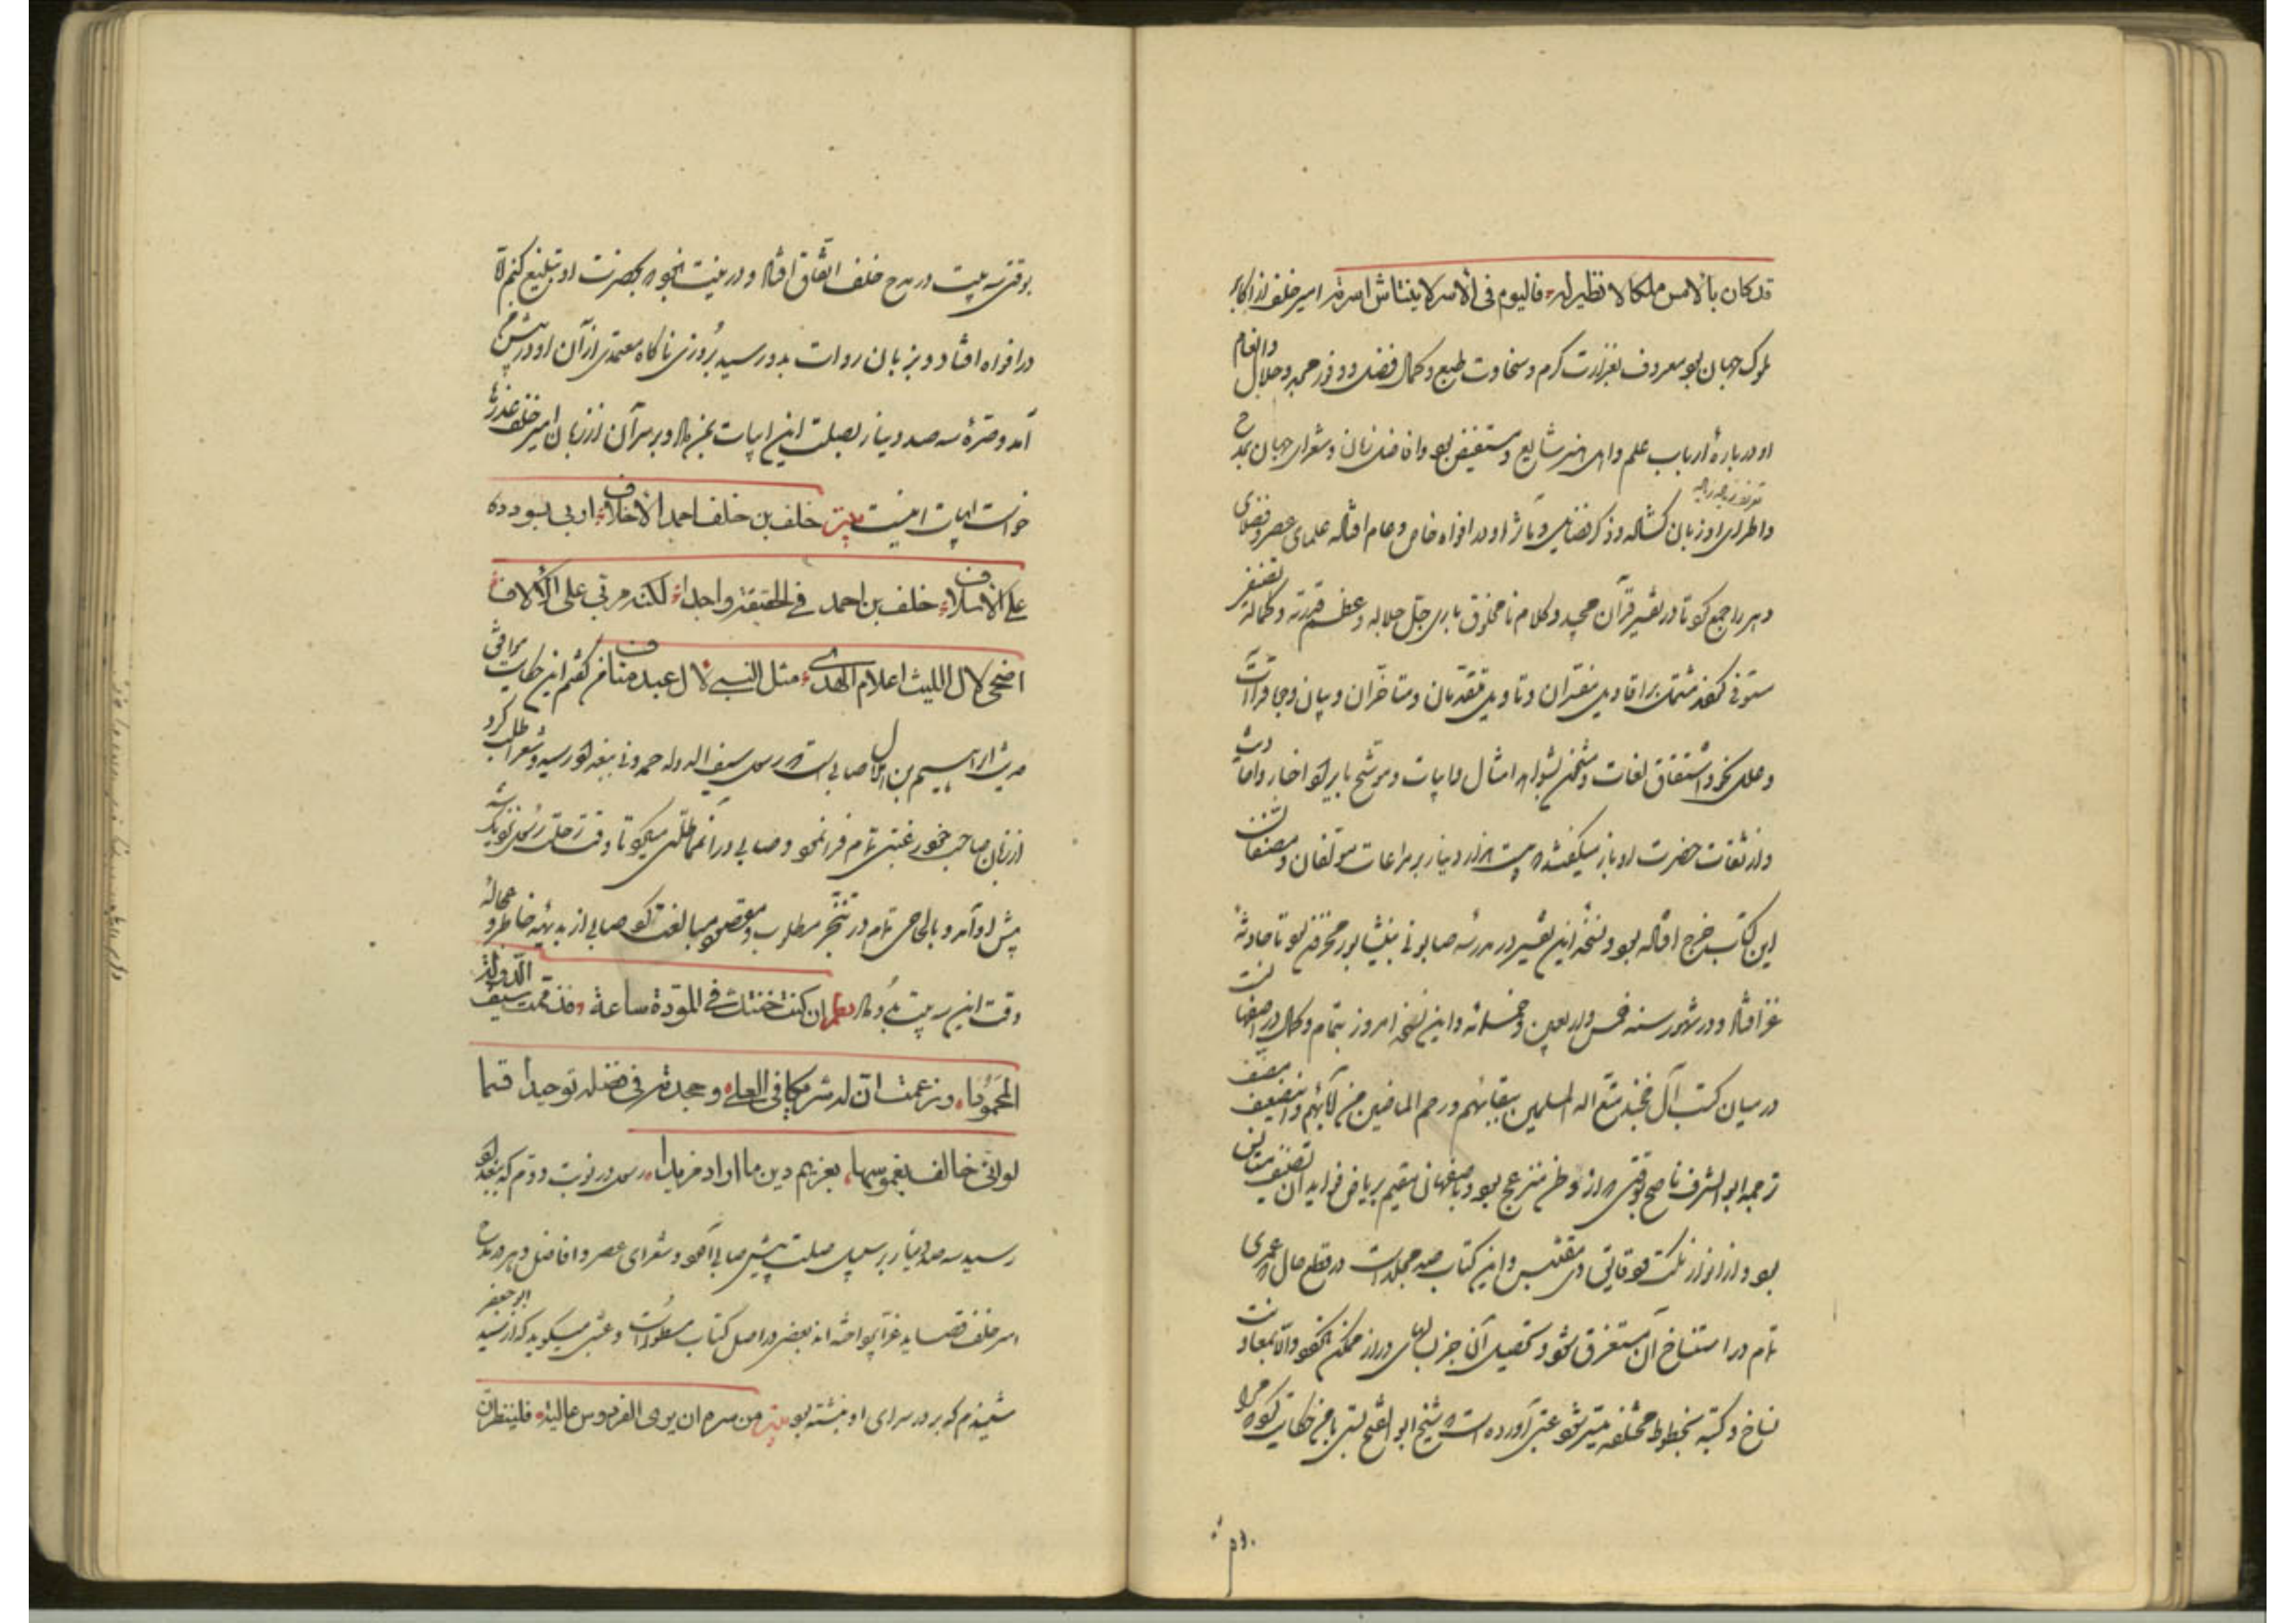 قد كان بالامس ملكا لا نظير له فاليوم فى الاسر لا ينتاش اسره امیر خلف از اکابر
ملوک جهان بود معروف بغزارت کرم و سخاوت طبع و کمال فضل و وفور مجد و جلال وانعام
او در باره ارباب علم و اهل هنر شایع و مستفیض بود و افاضل زمان و شعرای جهان بمدح
و اطرای او زبان گشاده و ذکر فضایل و مآثر او در افواه خاص و عام افتاده علمای عصر و فضلای
دهر را جمع کرد تا در تفسیر قرآن مجید و کلام نا مخلوق باری جل جلاله و عظم قدرته و کماله تصنیفی
مستوفی کردند مشتمل بر اقاویل مفسران و تاویل متقدمان و متاخران و بیان وجوه قراآت
و علل نحو و اشتقاق لغات و مشحون بشواهد امثال و ابیات و موشح بایراد اخبار و احادیث
و از ثقات حضرت او باز میگفتند که بیست هزار دینار بر مراعات مولفان و مصنفان
این کتاب خرج افتاده بود و نسخه این تفسیر در مدرسه صابونی بنیشابور مخزون بود تا حادثه
غز افتاد و در شهور سنه خمس و اربعین و خمسمائه و این نسخه امروز بتمام و کمال در اصفهانست
در میان کتب آل خجند متع الله المسلمین ببقائهم و رحم الماضین من آبائهم و
ترجمه ابو الشرف ناصح بوقتی که از وطن منزعج بود و باصفهان مقیم بریاض فواید آن تصنیف
بود و از انوار نکت و مقتبس و این کتاب صد مجلد است در قطع حال که عمری
تمام در استنساخ آن مستغرق شود و تحصیل آن جز بسالهای دراز ممکن نگردد والا بمعاونت
نساخ و کتبه بخطوط مختلفه میسر نشود عتبی آورده است که شیخ ابو الفتح بستی با من حکایت کرد که مرا
بوقتی سه بیت در مدح خلف اتفاق افتاد و در نیت نبود که بحضرت او تبلیغ کنم
در افواه افتاد و بزبان روات بدو رسید روزی ناگاه معتمدی از آن او در پیش من
آمد و صرهٔ سه صد دینار بصلت این ابیات بمن داد و بر سر آن از زبان امیر خلف عذرها
خواست ابیات اینست بیت خلف بن خلف احمد الاخلاف اربى بسودده
على الاسلاف خلف بن احمد فى الحقيقة واحد لكنه مرب على الآلاف
اضحى لآل الليث اعلام الهدى مثل النبى لآل عبد مناف گفتم این حکایت موافق
حدیث ابراهیم بن هلال صابی است که رسول سیف الدوله حمدونی ببغداد رسید و شعر او طلب کرد
از زبان صاحب خود رغبتی تمام فرا نمود و صابی در آن مماطلتی میکرد تا وقت رحلت رسول نزدیک شد
پیش او آمد و بالحاحی تمام در تنجز مطلوب و مقصود مبالغت کرد صابی از بدیهه خاطر و عجاله
وقت این سه بیت بدو داد شعر ان كنت خنتك فى المودة ساعة فذممت سيف الدولة
المحمودا وزعمت ان له شريكا فى العلى وجحدته فى فضله توحيدا قسما
لو انى حالف بغموسها لغريم دين ما اراد مزيدا رسول در نوبت دوم که ببغداد
رسید سه صد دینار بر سبیل صلت پیش صابی آورد و شعرای عصر و افاضل دهر در مدح
امیر خلف قصاید غرا پرداخته اند بعضی در اصل کتاب مسطورست و عتبی میگوید که از سید ابو جعفر
شنیدم که بر در سرای او نبشته بود بیت من سره ان يرى الفردوس عالية فلينظر ان